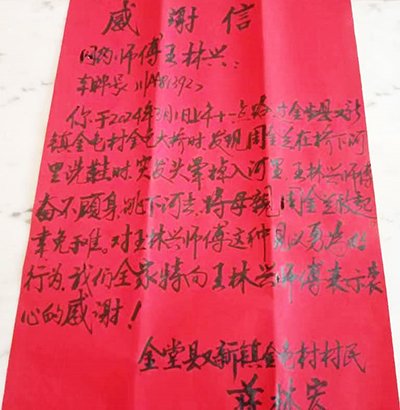 感谢信
网约师傅王林兴:
车牌是川A
你于2024年3月1日上午十一点路过金堂县又新
镇金屯村金屯大桥时发现周金兰在桥下河
里洗鞋时突发头晕掉入河里,王林兴师傅
奋不顾身跳下河去,将母親周金兰救起
幸免和难。对王林兴师傅这种见义勇为的
行为,我们全家特向王林兴师傅表示衷
心的感谢!
金堂县又新镇金屯村村民
蒋林宏